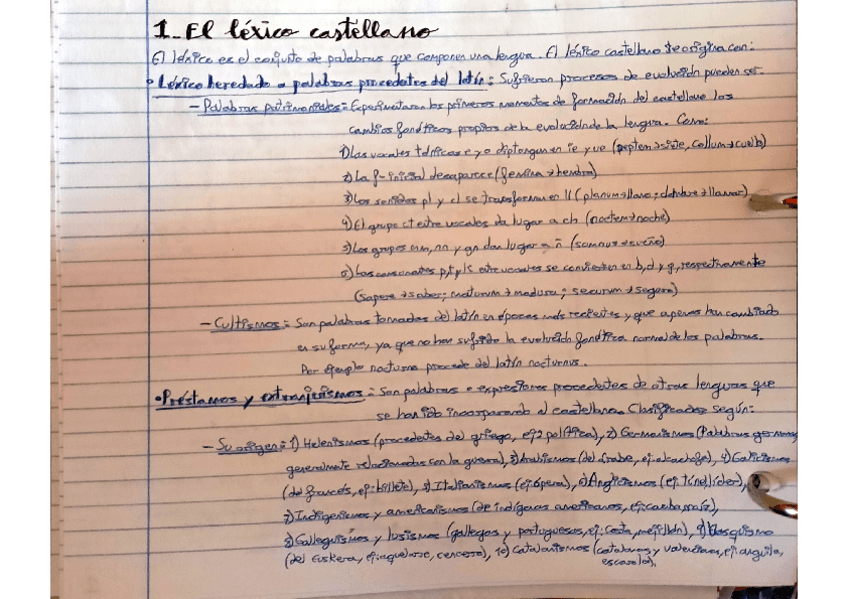 1_ El léxico castellano
El léxico es el conjunto de palabras que componen una lengua. El léxico castellano se origina con:
• Léxico heredado o palabras procedentes del latín: Sufrieron procesos de evolución pueden ser:
- Palabras patrimoniales: Experimentaron los primeros momentos de formación del castellano los
cambios fonéticos propios de la evolución de la lengua. Como:
1) Las vocales tónicas e y o diptongan en ie y ue (septem→siete, collum→cuello)
2) La f- inicial desaparece (femina→hembra)
3) Los sonidos pl y cl se transforman en ll (planum→llano; →llamar)
4) El grupo ct entre vocales da lugar a ch (noctem→noche)
5) Los grupos mn, nn y gn dan lugar a ñ (somnus→sueño)
6) Las consonantes p, t y k entre vocales se convierten en b, d y g, respectivamente
(sapere→saber; maturum→maduro; securum→seguro)
- Cultismos: Son palabras tomadas del latín en épocas más recientes y que apenas han cambiado
en su forma, ya que no han sufrido la evolución fonética normal de las palabras.
Por ejemplo nocturno procede del latín nocturnus.
• Préstamos y extranjerismos: Son palabras o expresiones procedentes de otras lenguas que
se han ido incorporando al castellano. Clasificadas según:
- Su origen: 1) Helenismos (procedentes del griego, ej: política), 2) Germanismos (Palabras
generalmente relacionadas con la guerra), 3) Arabismos (del árabe, ej: alcachofa), 4) Galicismos
(del francés, ej: billete), 5) Italianismos (ej: ópera), 6) Anglicismos (ej: túnel, líder),
7) Indigenismos y americanismos (de indígenas americanos, ej: maíz),
8) Galleguismos y lusismos (gallegos y portugueses, ej: mejillón), 9) Vasquismo
(del Euskera, ej: aquelarre, cencerro), 10) Catalanismos (catalanes y valencianos, ej: anguila,
escarola),